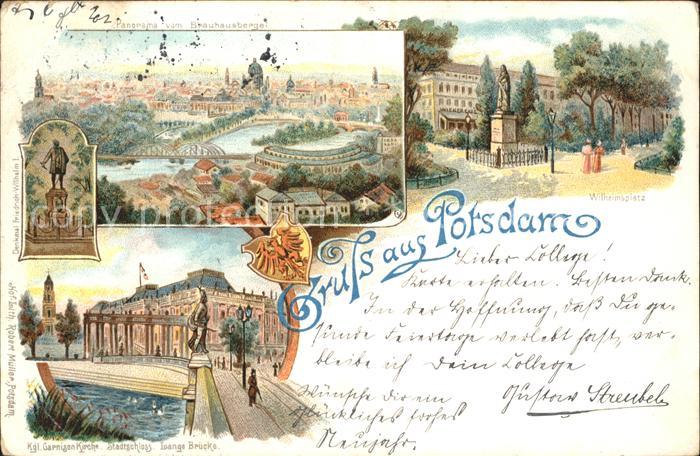 Panorama vom Brauhausberge
Wilhelmsplatz
Denkmal Friedrich Wilhelm I.
Gruss aus Potsdam
Lieber College!
Karte erhalten. Besten Dank.
In der Hoffnung, daß Du ge-
sunde Feiertage verlebt hast, ver-
bleibe ich Dein College
Gustav Streubel
Wünsche dir ein
glückliches frohes
Neujahr.
Hof-Lith. Robert Müller, Potsdam.
Kgl. Garnison Kirche. Stadtschloss. Lange Brücke.